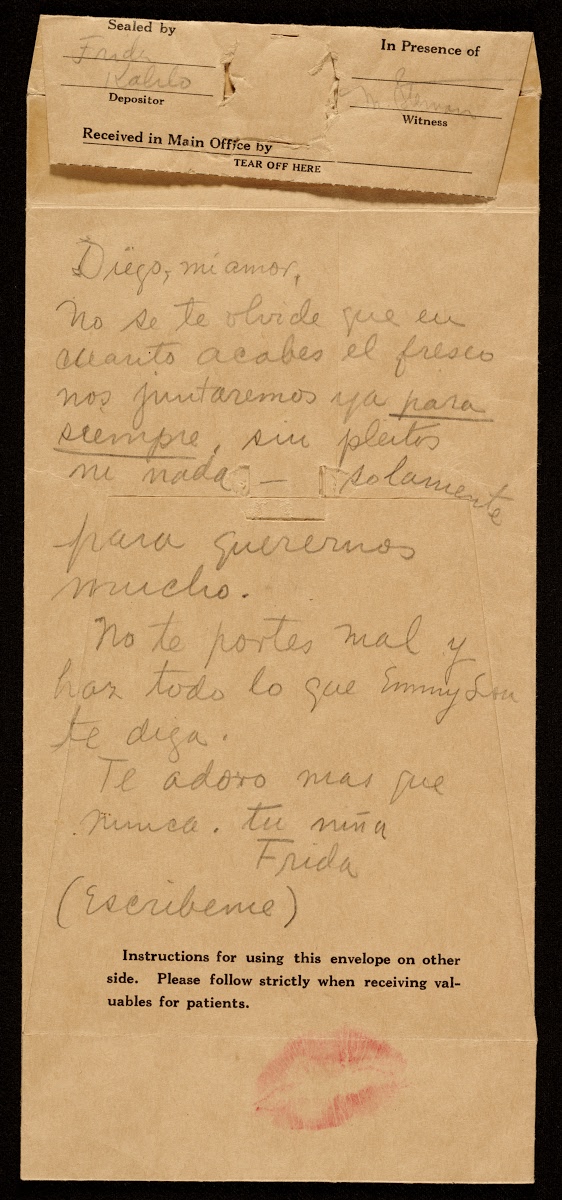 Sealed by
In Presence of
Frida
Kahlo
Depositor
Witness
Received in Main Office by
TEAR OFF HERE
Diego, mi amor,
No se te olvide que en
cuanto acabes el fresco
nos juntaremos ya para
siempre, sin pleitos
ni nada — solamente
para querernos
mucho.
No te portes mal y
haz todo lo que Emmy Lou
te diga.
Te adoro mas que
nunca. tu niña
Frida
(Escribeme)
Instructions for using this envelope on other
side. Please follow strictly when receiving val-
uables for patients.